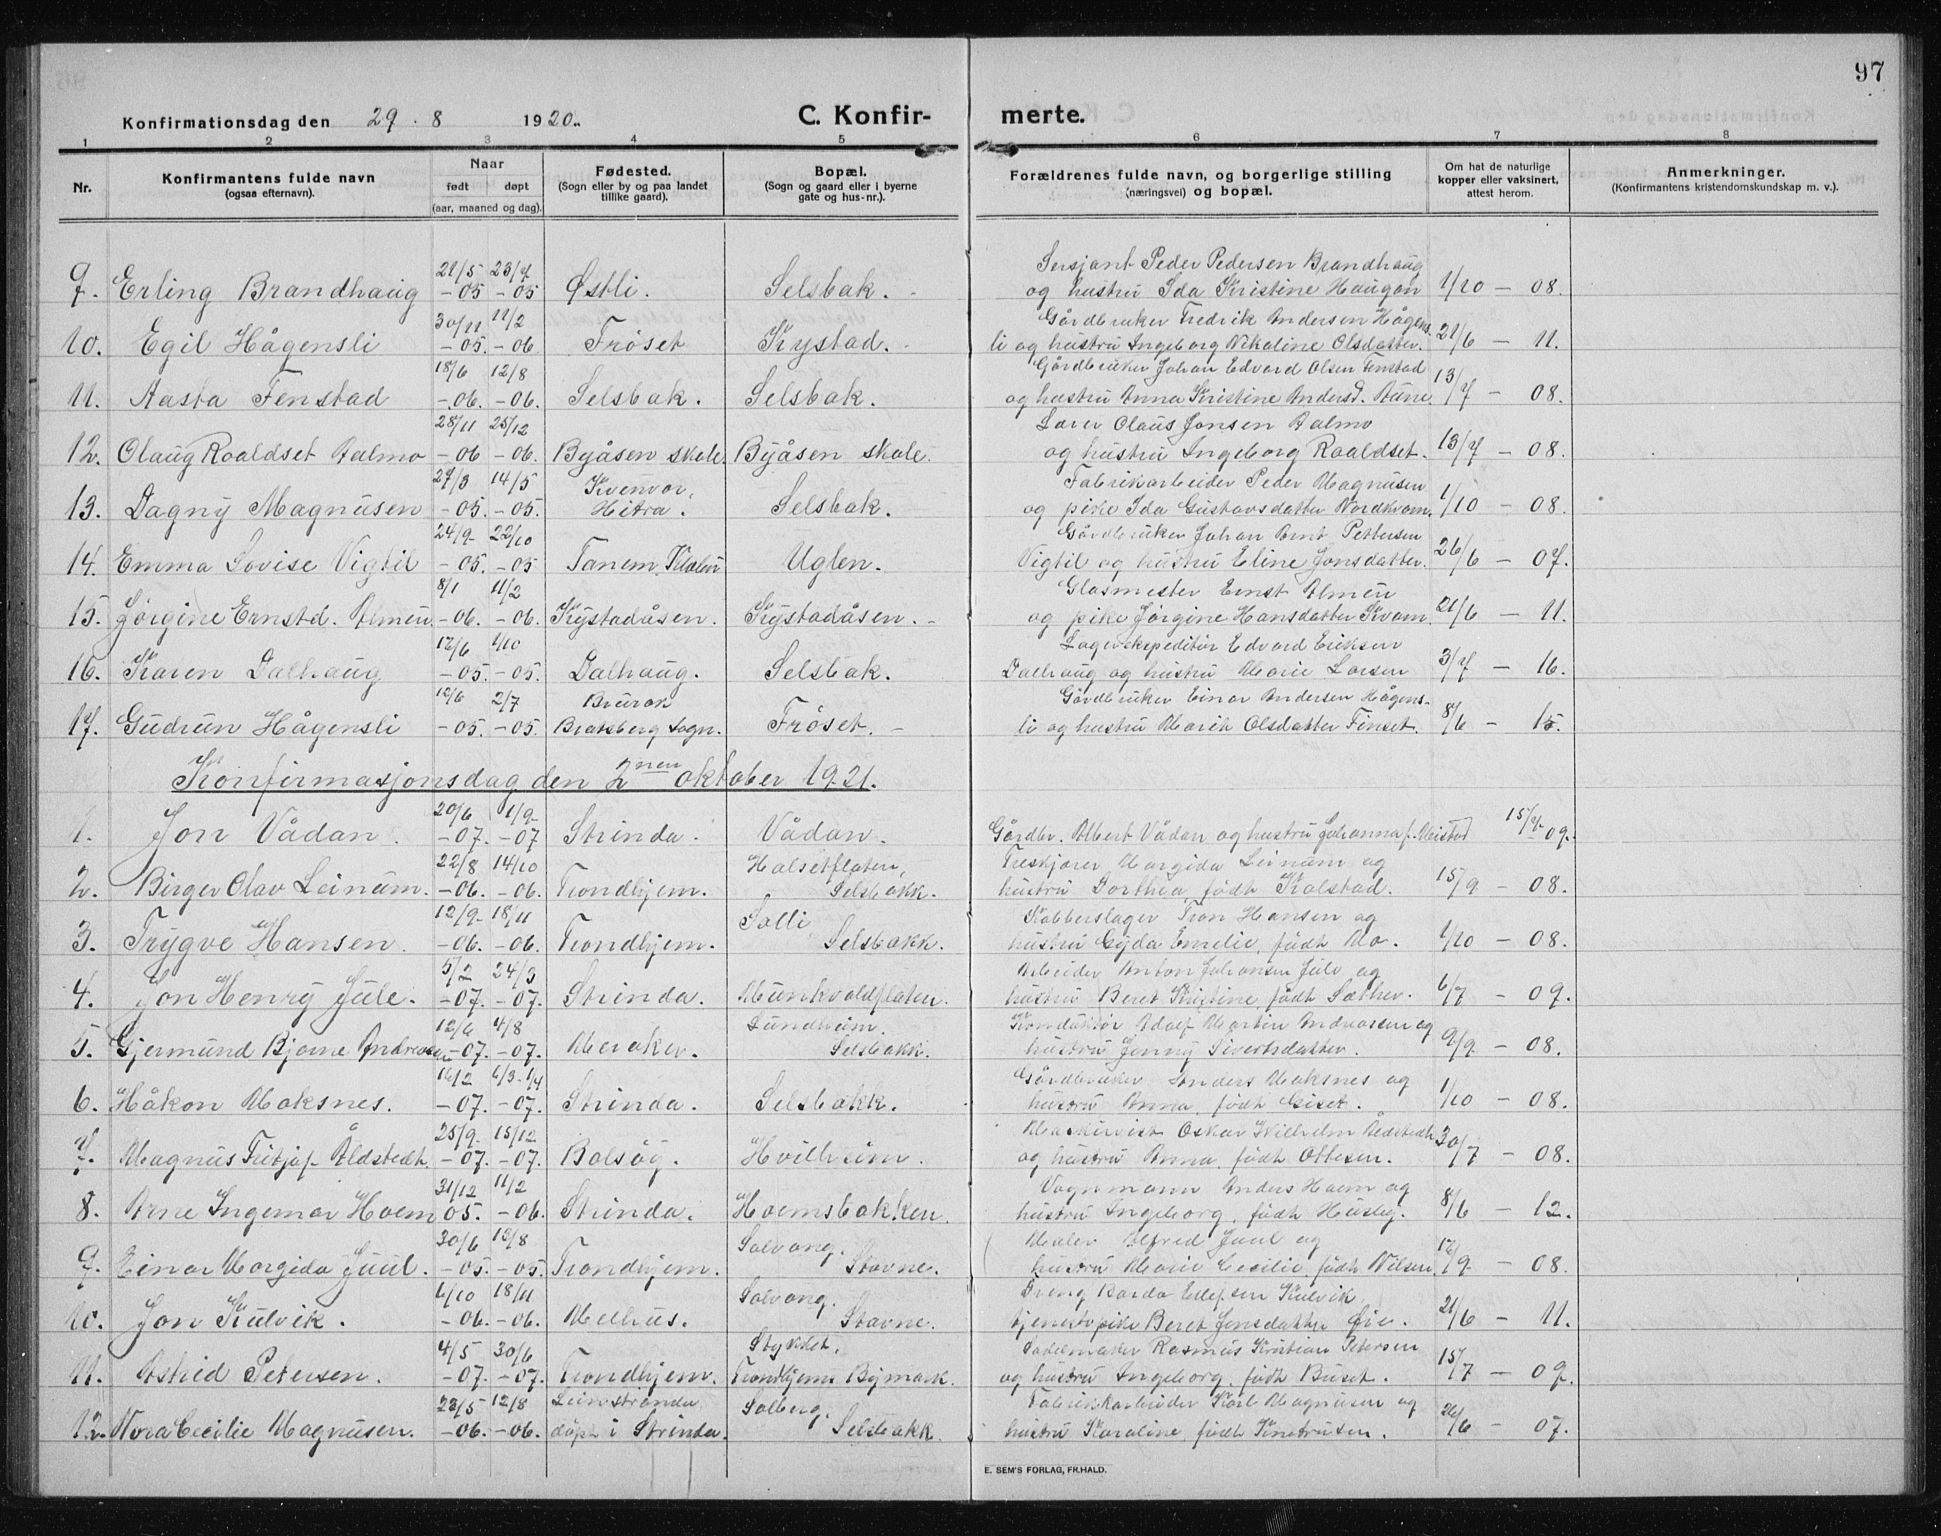 97
Konfirmationsdag den 29 . 8 1920.
C. Konfirmerte.
1 2 3 4 5 6 7 8
Nr.
Konfirmantens fulde navn
(ogsaa efternavn).
Naar
født døpt
(aar, maaned og dag).
Fødested.
(Sogn eller by og paa landet
tillike gaard).
Bopæl.
(Sogn og gaard eller i byerne
gate og hus-nr.).
Forældrenes fulde navn, og borgerlige stilling
(næringsvei) og bopæl.
Om hat de naturlige
kopper eller vaksinert,
attest herom.
Anmerkninger.
(Konfirmantens kristendomskundskap m. v.).
21/5 23/7 Sersjant Peder Pedersen Brandhaug
9. Erling Brandhaug -05 -05 Østli. Selsbak. og hustru Ida Kristine Haugan 1/10 - 08.
30/11 11/2 Gårdbruker Fredrik Andersen Hågens-
10. Egil Hågensli -05. -06 Frøset Kystad. li og hustru Ingeborg Nikoline Olsdatter. 21/6 - 11.
18/6 12/8 Gårdbruker Johan Edvard Olsen Fenstad
11. Aasta Fenstad -06. -06. Selsbak. Selsbak. og hustru Anna Kristine Andersd. Aune. 13/7 - 08.
28/11 25/12 Lærer Claus Jonsen Dalmo
12. Olaug Roaldset Dalmo -06 -06. Byåsen skole. Byåsen skole. og hustru Ingeborg Roaldset. 13/7 - 08.
27/3 14/5 Kvenvær, Fabrikarbeider Peder Magnusen
13. Dagny Magnusen -05. -05. Hitra. Selsbak. og pike Ida Gustavsdatter Nordkvam. 1/10 - 08.
24/9 22/10 Gårdbruker Johan Arnt Pettersen
14. Emma Lovise Vigtil -05. -05 Tanem, Klæbu Uglen. Vigtil og hustru Eline Jonsdatter. 26/6 - 07.
8/1 11/2 Glasmester Ernst Almén
15. Jørgine Ernstd. Almén. -06. -06. Kystadåsen. Kystadåsen. og pike Jørgine Hansdatter Kvam. 21/6 - 11.
12/6 1/10 Lagerekspeditør Edvard Eriksen
16. Karen Dalhaug -05. -05. Dalhaug. Selsbak. Dalhaug og hustru Marie Larsen 3/7 - 16.
12/6 2/7 Brurok Gårdbruker Einar Andersen Hågens-
17. Gudrun Hågensli -05. -05. Bratsberg sogn. Frøset. li og hustru Marit Olsdatter Finset. 8/6 - 15.
Konfirmasjonsdag den 2nen oktober 1921.
20/6 1/9
1. Jon Vådan. -07. -07 Strinda. Vådan. Gårdbr. Albert Vådan og hustru Johanna f. Meistad 15/7 09.
22/8 14/10 Halsetflaten, Treskjærer Margido Leinum og
2. Birger Olav Leinum. -06. -06. Trondhjem. Selsbakk. hustru Dorthea, født Kolstad. 15/9 - 08.
12/9 18/11 Solli Kobberslager Tron Hansen og
3. Trygve Hansen. -06. -06. Trondhjem. Selsbakk. hustru Gyda Emelie, født Mo. 1/10 - 08.
5/2 24/3 Arbeider Anton Johansen Jule og
4. Jon Henry Jule. -07. -07. Strinda. Munkvoldflaten. hustru Beret Kristine, født Sæther. 6/7 - 09.
12/6 4/8 Lundheim. Konduktør Adolf Martin Andreassen og
5. Gjermund Bjarne Andreasen -07. -07. Meraker. Selsbakk. hustru Jenny Sivertsdatter. 9/9 - 08.
16/2 6/3-1/4 Gårdbruker Anders Moksnes og
6. Håkon Moksnes. -07. -07. Strinda. Selsbakk. hustru Anna, født Giset. 1/10 - 08.
25/9 15/12 Maskinist Oskar Wilhelm Åldstedt
7. Magnus Fritjof Åldstedt. -07. -07. Bolsøy. Hvilheim. og hustru Anna, født Ottesen. 30/7 - 08.
31/12 11/2 Vognmann Anders Hoem og
8. Arne Ingemar Hoem 05. -06. Strinda. Hoemsbakken. hustru Ingeborg, født Husby. 8/6 - 12.
30/6 12/8 Solvang. Maler Alfred Juul og
9. Einar Margido Juul. -05. -05. Trondhjem. Stavne. hustru Marie Cecilie, født Nilsen. 12/9 - 08.
6/10 18/11 Solvang. Dreng Bardo Edefsen Kulvik,
10. Jon Kulvik. -06. -06. Melhus. Stavne. tjenestepike Beret Jonsdatter Øie. 21/6 - 11.
4/5 30/6 Stykket, Sadelmaker Rasmus Kristian Petersen
11. Astrid Petersen. -07. -07. Trondhjem. Trondhjems Bymark. og hustru Ingeborg, født Buset. 15/7 - 09.
23/5 12/8 Leinstranda, Solberg, Fabrikkarbeider Karl Magnusen og
12. Nora Cecilie Magnusen. -06. -06. døpt i Strinda. Selsbakk. hustru Karoline, født Knutrusen. 26/6 - 07.
E. SEM'S FORLAG, FR.HALD.